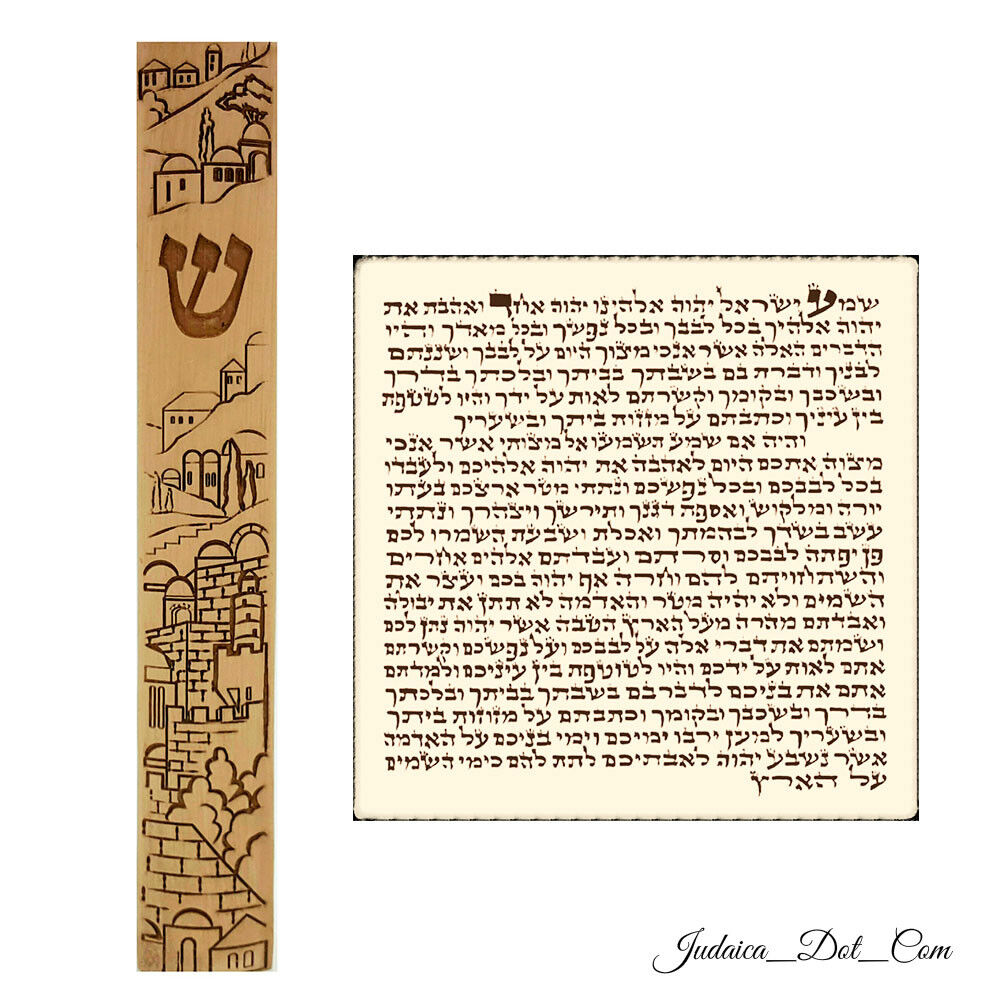 שמע ישראל יהוה אלהינו יהוה אחד ואהבת את
יהוה אלהיך בכל לבבך ובכל נפשך ובכל מאדך והיו
הדברים האלה אשר אנכי מצוך היום על לבבך ושננתם
לבניך ודברת בם בשבתך בביתך ובלכתך בדרך
ובשכבך ובקומך וקשרתם לאות על ידך והיו לטטפת
בין עיניך וכתבתם על מזזות ביתך ובשעריך
והיה אם שמע תשמעו אל מצותי אשר אנכי
מצוה אתכם היום לאהבה את יהוה אלהיכם ולעבדו
בכל לבבכם ובכל נפשכם ונתתי מטר ארצכם בעתו
יורה ומלקוש ואספת דגנך ותירשך ויצהרך ונתתי
עשב בשדך לבהמתך ואכלת ושבעת השמרו לכם
פן יפתה לבבכם וסרתם ועבדתם אלהים אחרים
והשתחויתם להם וחרה אף יהוה בכם ועצר את
השמים ולא יהיה מטר והאדמה לא תתן את יבולה
ואבדתם מהרה מעל הארץ הטבה אשר יהוה נתן לכם
ושמתם את דברי אלה על לבבכם ועל נפשכם וקשרתם
אתם לאות על ידכם והיו לטוטפת בין עיניכם ולמדתם
אתם את בניכם לדבר בם בשבתך בביתך ובלכתך
בדרך ובשכבך ובקומך וכתבתם על מזוזות ביתך
ובשעריך למען ירבו ימיכם וימי בניכם על האדמה
אשר נשבע יהוה לאבתיכם לתת להם כימי השמים
על הארץ
ש
Judaica_Dot_Com